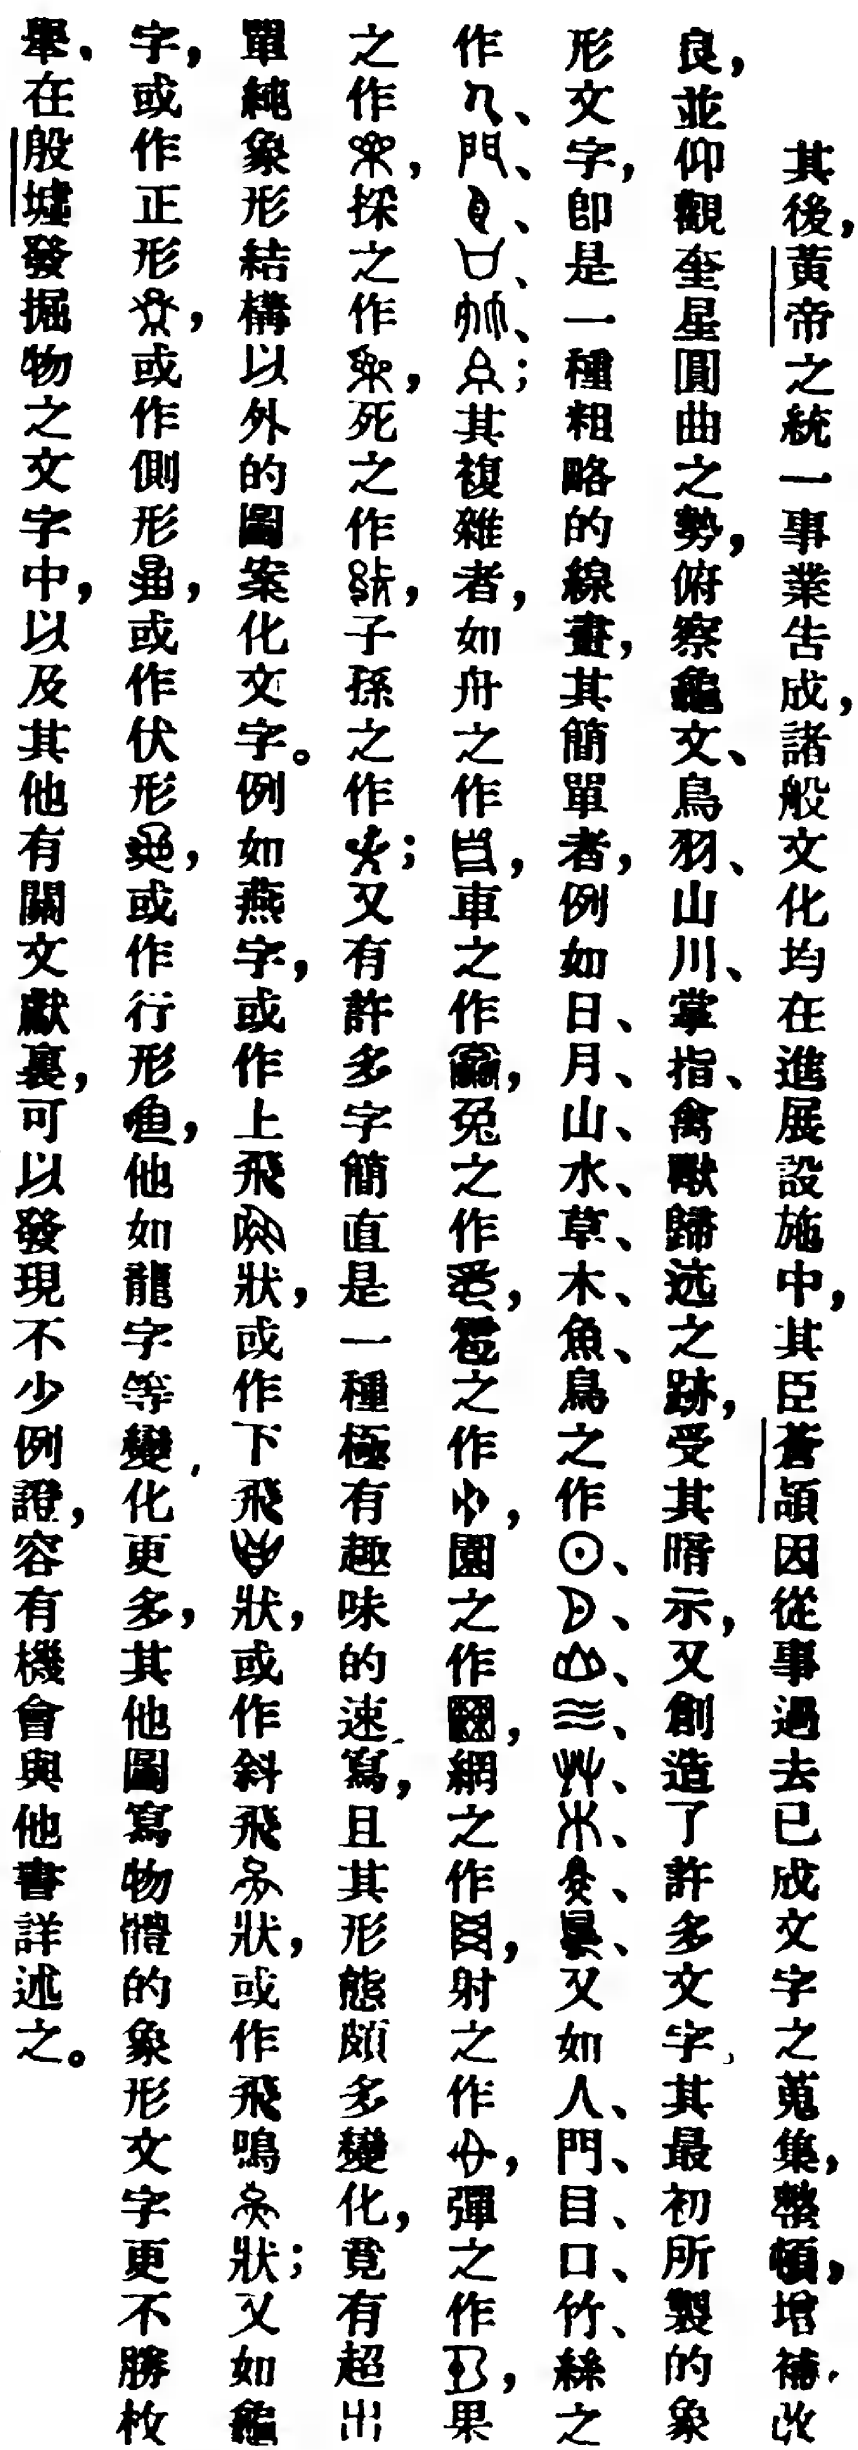 其後，黃帝之統一事業告成，諸般文化均在進展設施中，其臣蒼頡因從事過去已成文字之蒐集，整頓，增補，改
良，並仰觀奎星圓曲之勢，俯察龜文、鳥羽、山川、掌指、禽獸歸迒之跡，受其暗示，又創造了許多文字，其最初所製的象
形文字，卽是一種粗略的線畫，其簡單者，例如日、月、山、水、草、木、魚、鳥之作、、、、、、、又如人、門、目、口、竹、絲之
作、、、、、；其複雜者，如舟之作，車之作，兔之作，雹之作，園之作，網之作，射之作，彈之作，果
之作，採之作，死之作，子孫之作；又有許多字簡直是一種極有趣味的速寫，且其形態頗多變化，竟有超出
單純象形結構以外的圖案化文字。例如燕字，或作上飛狀，或作下飛狀，或作斜飛狀，或作飛鳴狀；又如龜
字，或作正形，或作側形，或作伏形，或作行形，他如龍字等變化更多，其他圖寫物體的象形文字更不勝枚
舉，在殷墟發掘物之文字中，以及其他有關文獻裏，可以發現不少例證，容有機會與他書詳述之。